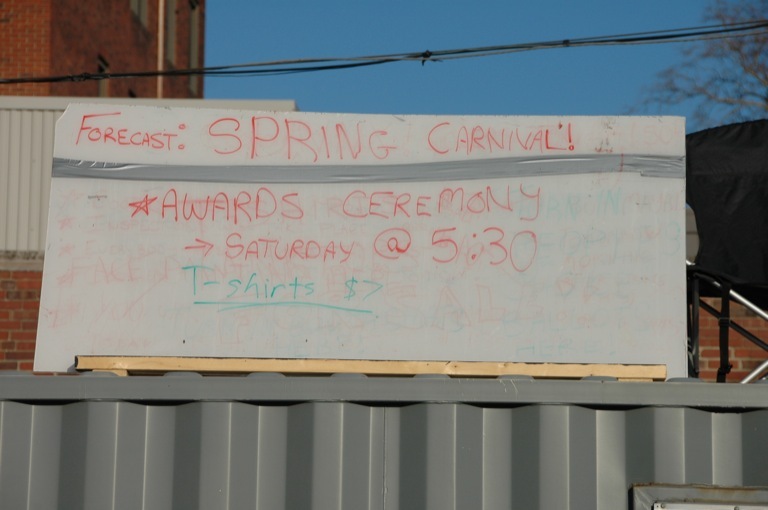 FORECAST: SPRING CARNIVAL!
*AWARDS CEREMONY
→ SATURDAY @ 5:30
T-shirts $7